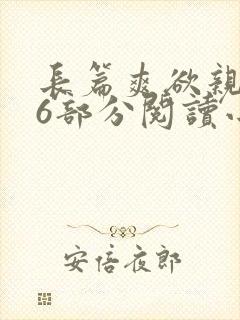 長篇爽欲親
6部分閱讀
安倍夜郎